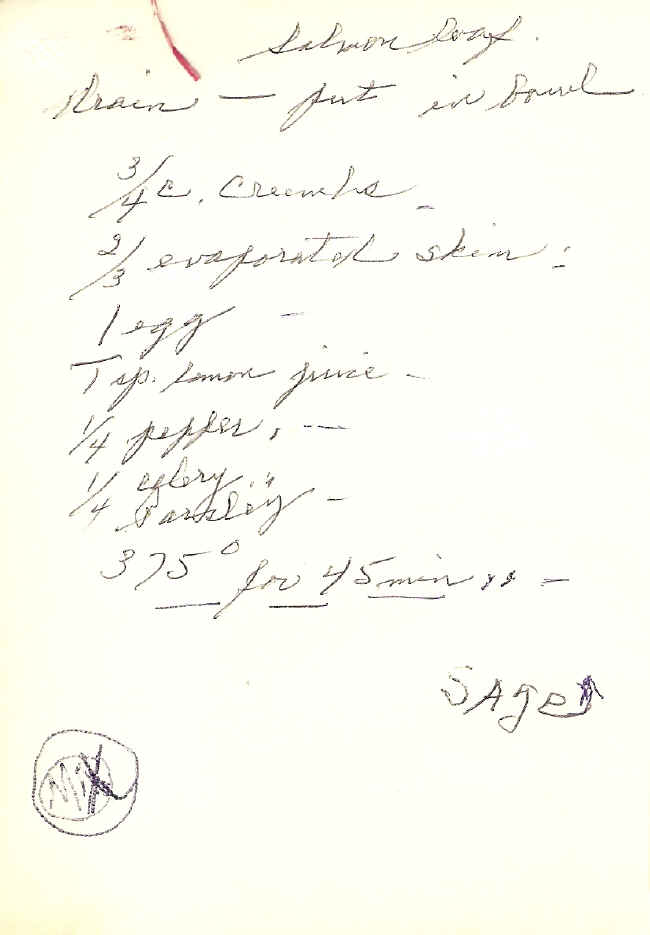 Salmon Loaf.
Drain — put in bowl
3/4 c. Crumbs -
2/3 evaporated skim -
1 egg -
T sp. lemon juice -
1/4 pepper, —
1/4 celery
Parsley -
375° for 45 min -
SAge
Mix